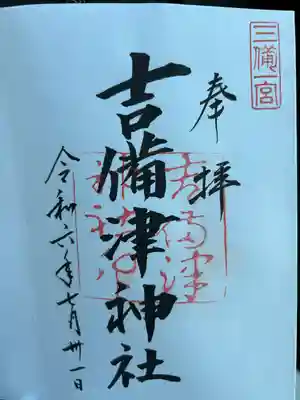 三備一宮
奉拝
吉備津神社
令和六年七月卅一日